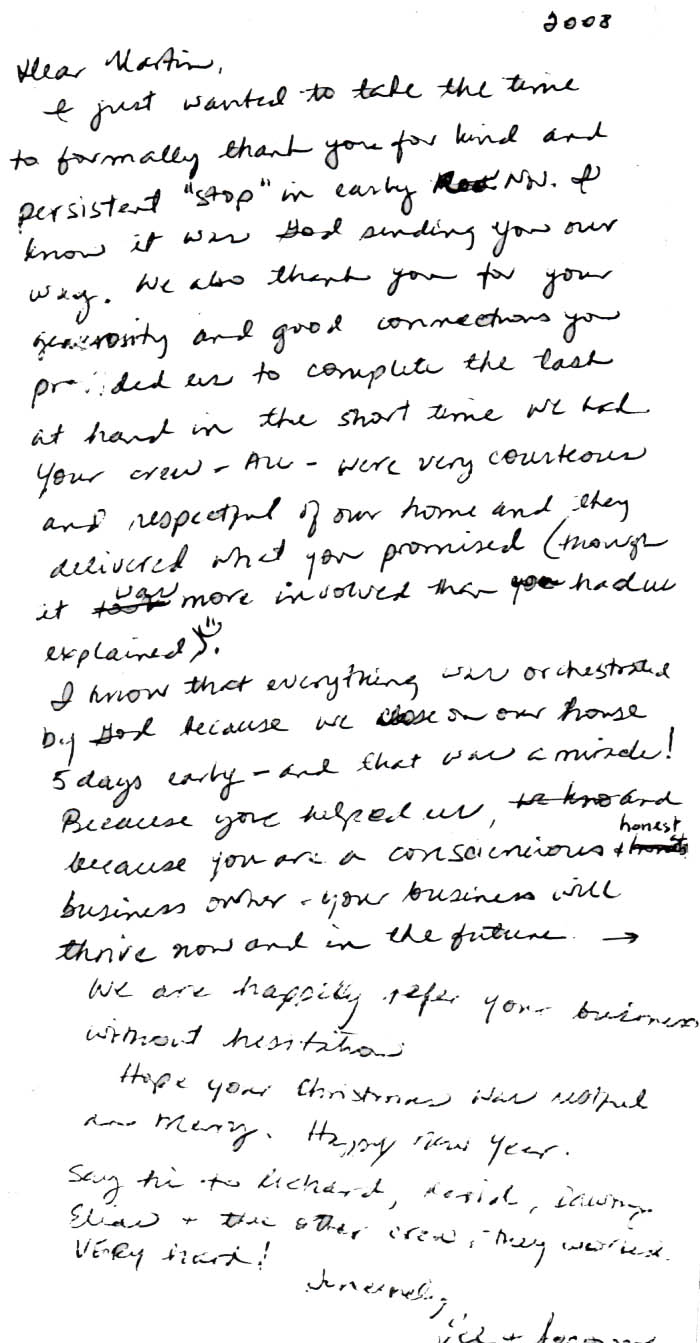 2008
Dear Martin,
I just wanted to take the time
to formally thank you for kind and
persistent "stop" in early Nov. I
know it was God sending you our
way. We also thank you for your
generosity and good connections you
provided us to complete the task
at hand in the short time we had
Your crew - All - were very courteous
and respectful of our home and they
delivered what you promised (though
it was more involved than you had us
explained).
I know that everything was orchestrated
by God because we close on our house
5 days early - and that was a miracle!
Because you helped us, and
because you are a conscienious + honest
business owner - your business will
thrive now and in the future. →
We are happily refer your business
without hesitation
Hope your Christmas was restful
and Merry. Happy New Year.
Say hi to Richard, David,
+ the other crew, they worked
VERY hard!
Sincerely,